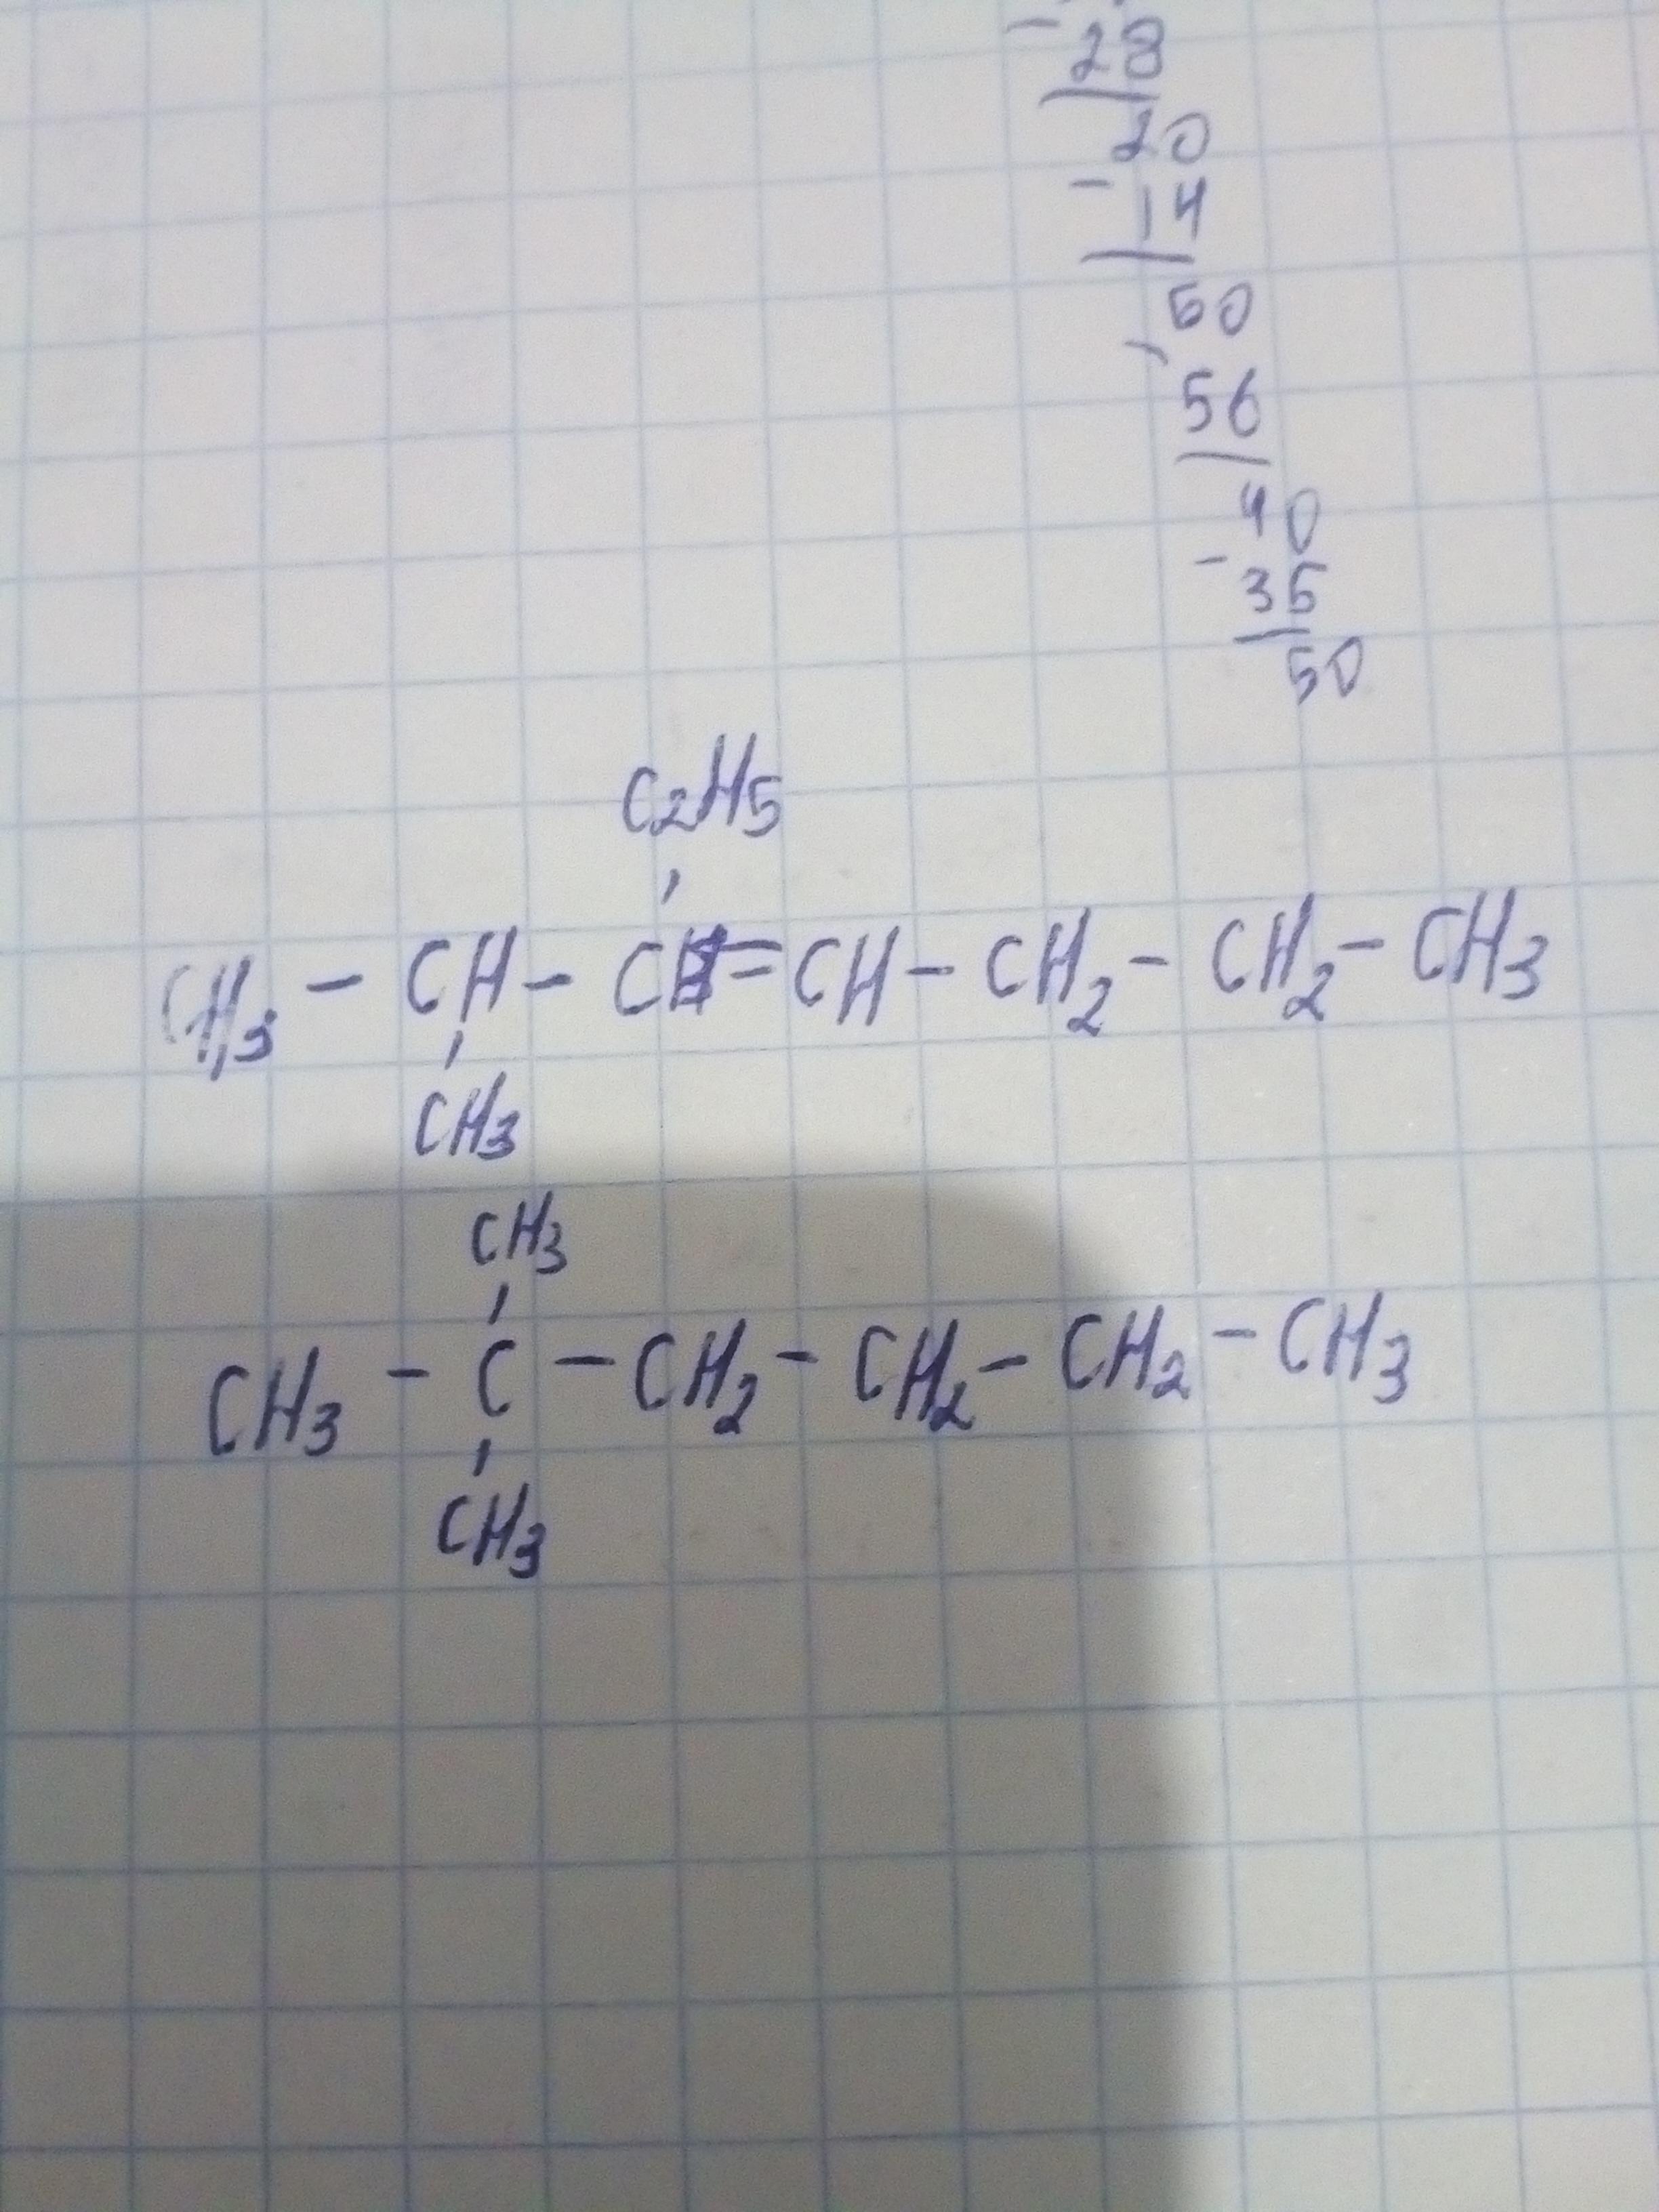 - 28
20
- 14
60
- 56
40
- 35
50
C2H5
CH3 - CH - C = CH - CH2 - CH2 - CH3
CH3
CH3
CH3 - C - CH2 - CH2 - CH2 - CH3
CH3